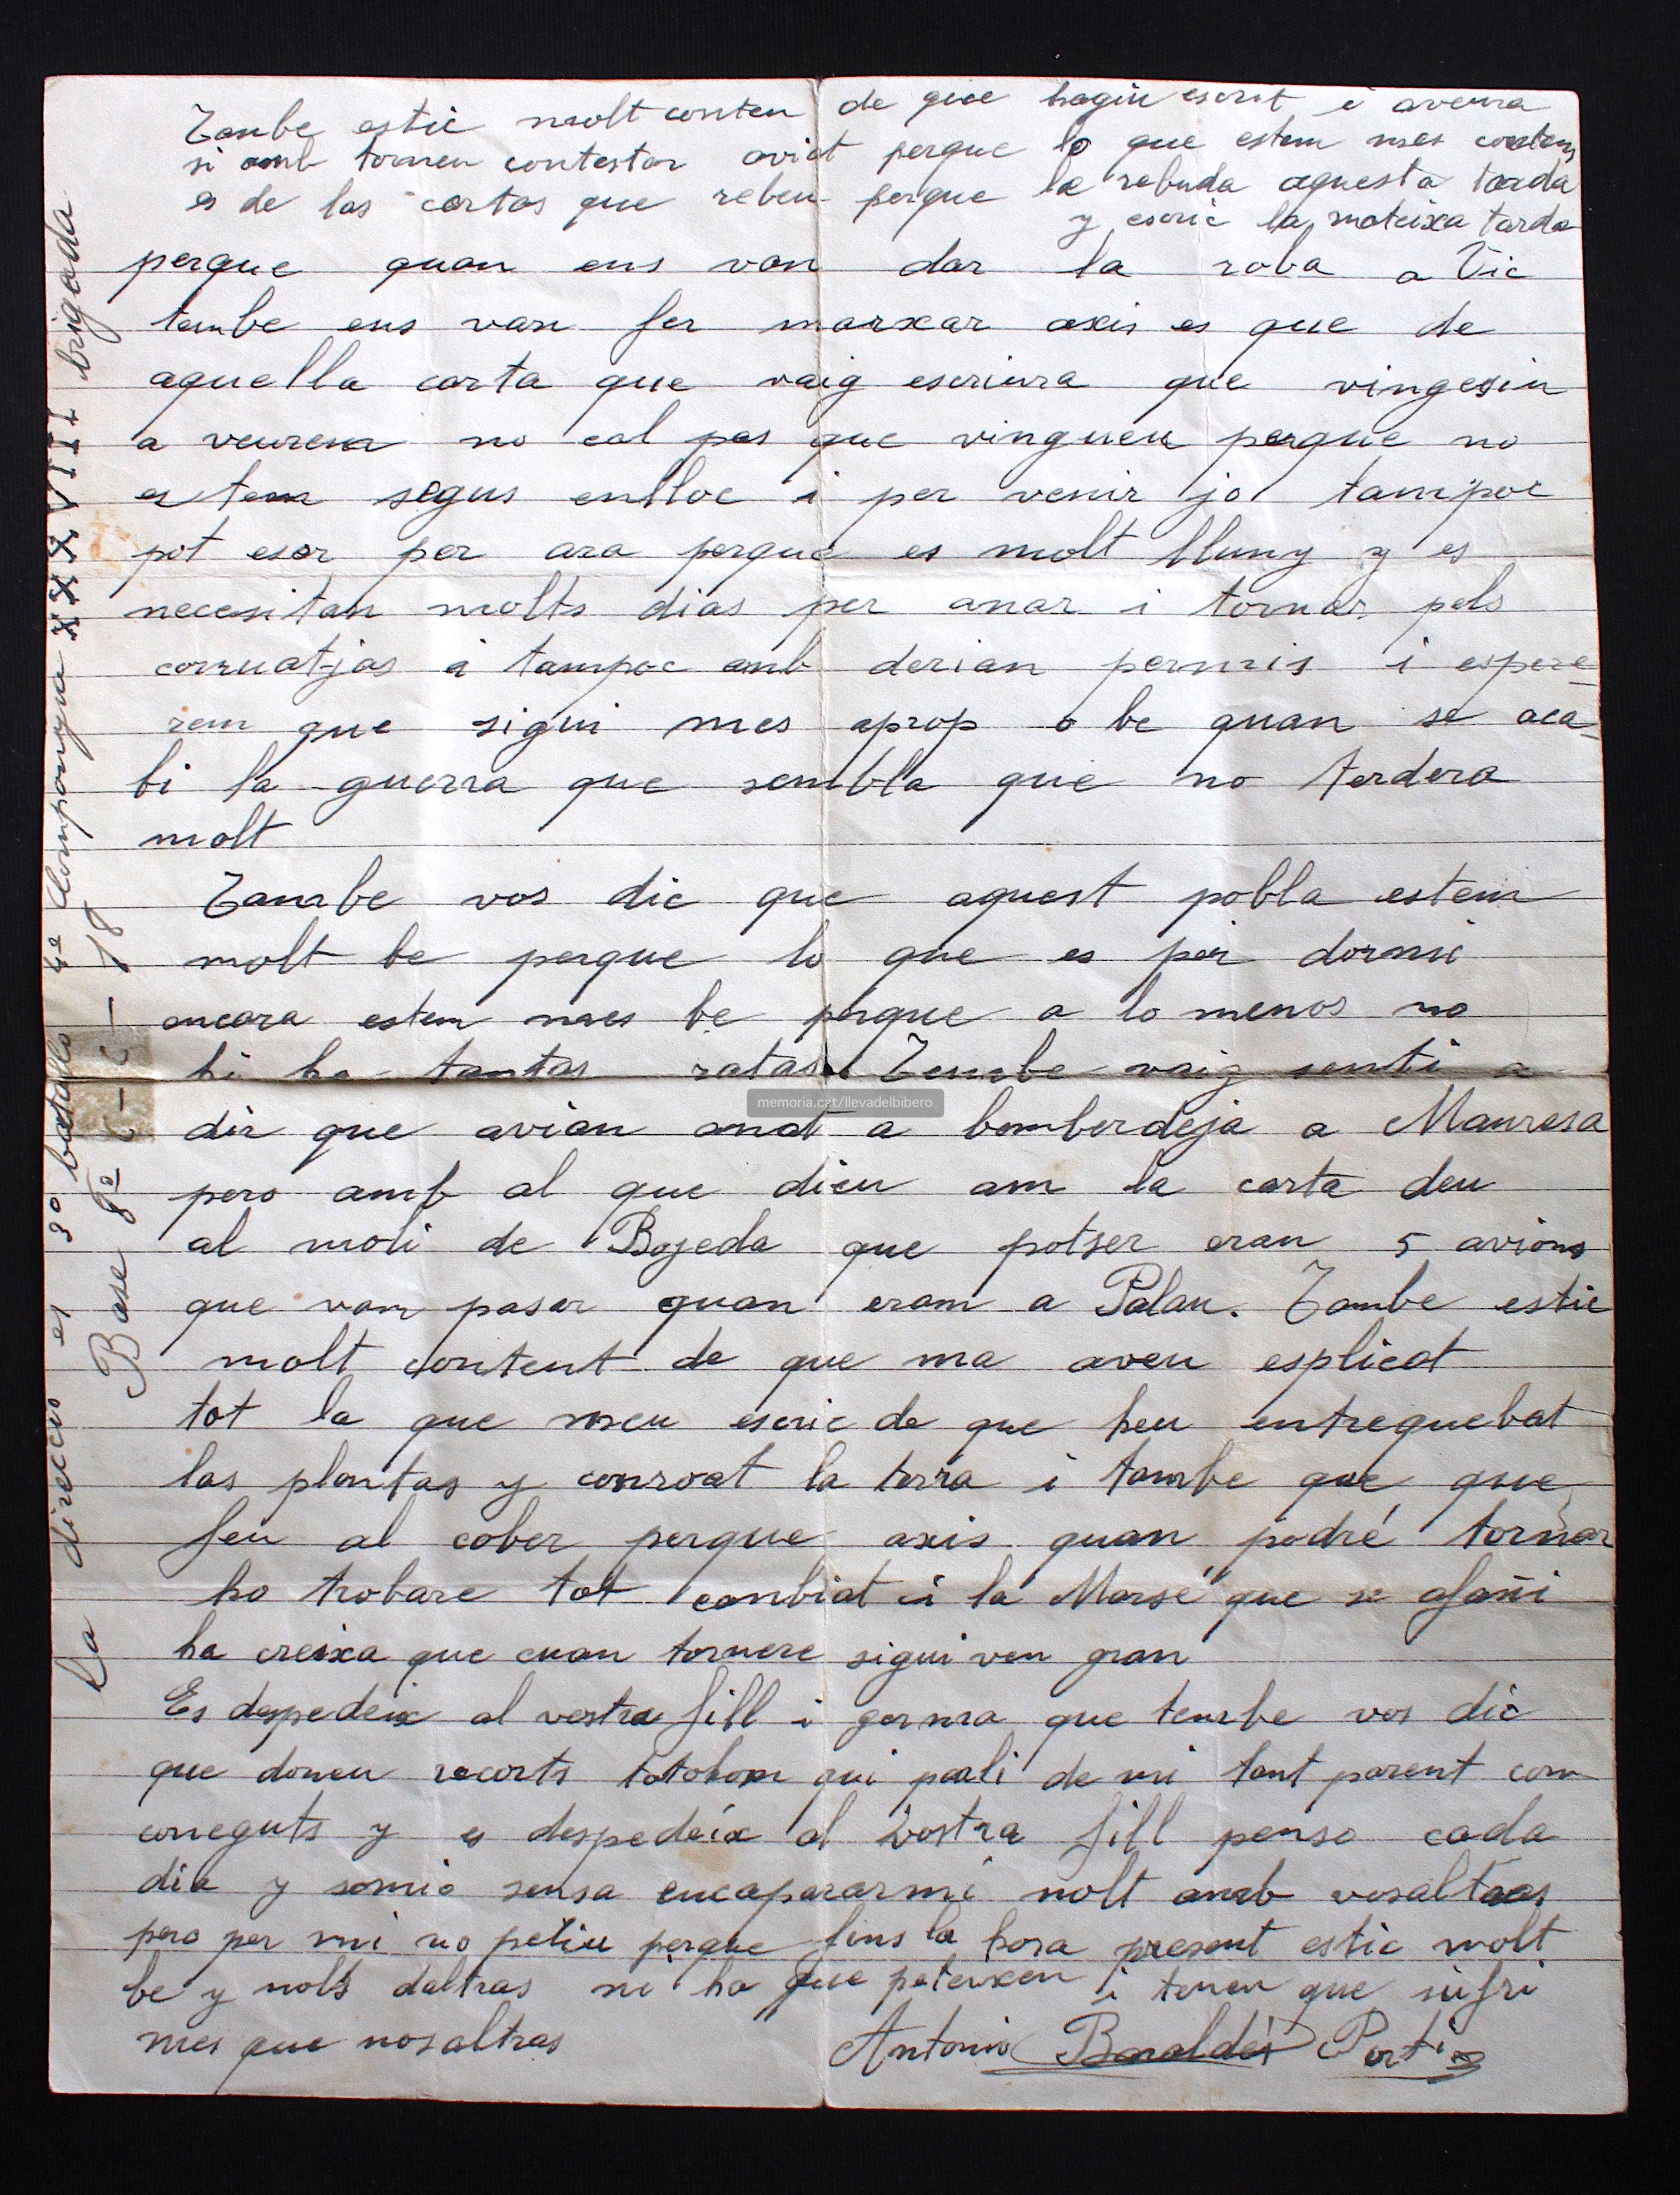 Tambe estic molt conten de que hagiu escrit i aveura
si amb torneu contestar aviat perque lo que estem mes contens
es de las cartas que rebeu perque la rebuda aquesta tarda
y escric la mateixa tarda
perque quan ens van dar la roba a Vic
tambe ens van fer marxar axis es que de
aquella carta que vaig escriura que vingesiu
a veurem no cal pas que vingueu perque no
estem segus enlloc i per venir jo tampoc
pot eser per ara perque es molt lluny y es
necesitan molts dias per anar i tornar pels
corruatjas i tampoc amb derian permis i espere-
rem que sigui mes aprop o be quan se aca-
bi la guerra que sembla que no tardera
molt
Tambe vos dic que aquest pobla estem
molt be perque lo que es per dormi
encara estem mes be perque a lo menos no
hi ha tantas ratas. Tambe vaig senti a
dir que avian anat a bomberdeja a Manresa
pero amb al que dieu am la carta deu
al moli de Bojeda que potser eran 5 avions
que vam pasar quan eram a Palau. Tambe estic
molt content de que ma aveu esplicat
tot la que meu escric de que heu entreguebat
las plantas y conroat la terra i tambe que que
feu al cober perque axis quan podré tornar
ho trobare tot canbiat i a la Marsé que se afañi
ha creixa que cuan tornere sigui ven gran
Es despedeix al vostra fill i germa que tembe vos dic
que doneu recorts totohom qui parli de mi tant parent com
coneguts y es despedeix al vostra fill penso cada
dia y somio sensa encapararmi molt amb vosaltras
pero per mi no petiu perque fins la hora present estic molt
be y molts daltras ni ha que peteixen i tenen que sufri
mes que nosaltras
Antonio Baraldés Portí
La direccio es 3º batallo 4ª Companyia XXXVII brigada
Base 8ª C-C-18
memoria.cat/llevadelbibero